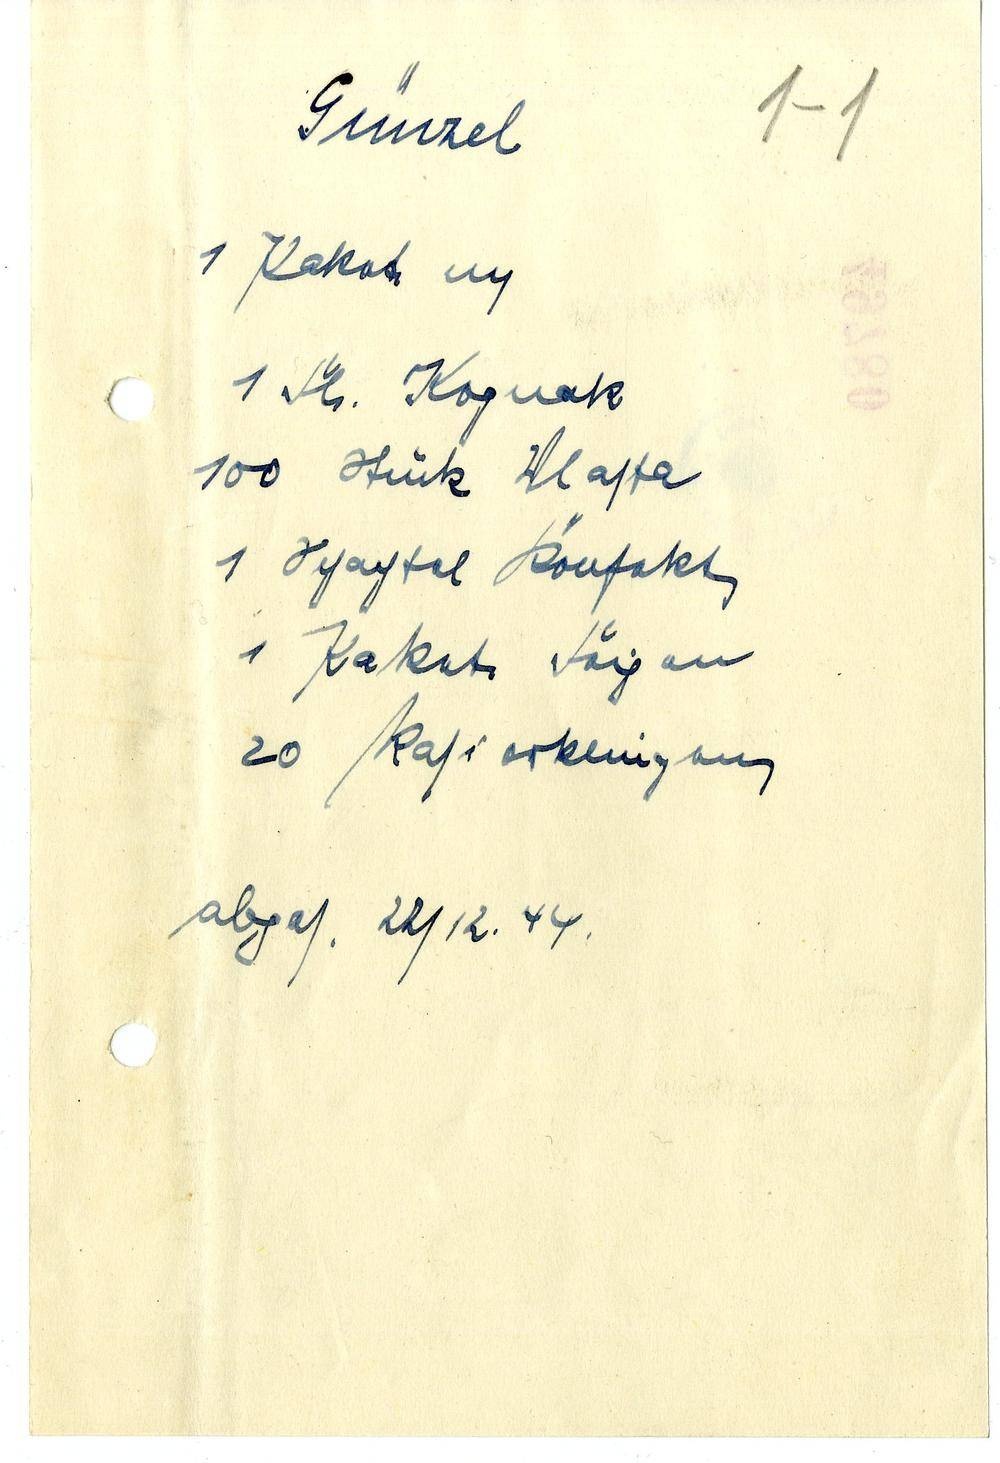 Günzel
1-1
1 Paket
1 Fl. Kognak
100 Stück Vlasta
1 Schachtel Konfekt
1 Paket Feigen
20 Rasierklingen
abges. 22/12. 44.
08267